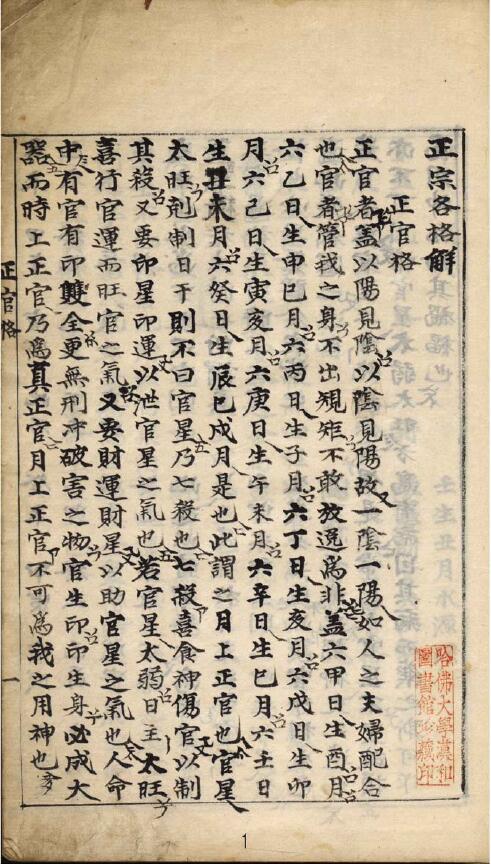 正宗各格解
正官格
正官者盖以陽見陰以陰見陽故一陰一陽如人之夫婦配合
也官者管我之身不出規矩不敢放逸爲非盖六甲日生酉月
六乙日生申巳月六丙日生子月六丁日生亥月六戊日生卯
月六己日生寅亥月六庚日生午未月六辛日生巳月六壬日
生丑未月六癸日生辰巳戌月是也此謂之月上正官也官星
太旺剋制日干則不曰官星乃七殺也七殺喜食神傷官以制
其殺又要印星印運以泄官星之氣也若官星太弱日主太旺
喜行官運而旺官之氣又要財運財星以助官星之氣也人命
中有官有印雙全更無刑冲破害之物官生印印生身必成大
器而時上正官乃爲真正官月上正官不可爲我之用神也
正官格
一
哈佛大學漢和
圖書館珍藏印
1